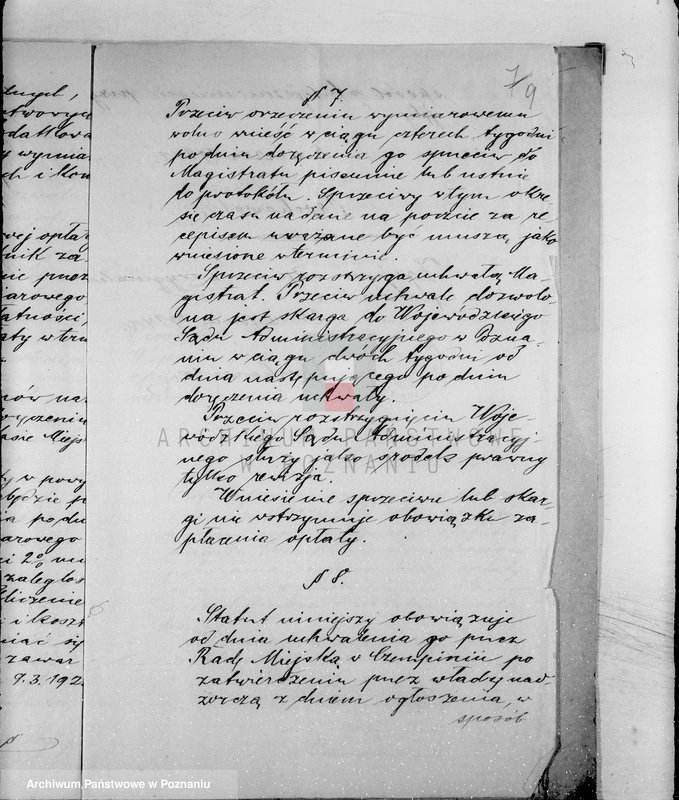 7/9
§ 7.
Przeciw orzeczeniu wymiarowemu
wolno wnieść w ciągu czterech tygodni
po dniu doręczenia go sprzeciw do
Magistratu pisemnie lub ustnie
do protokółu. Sprzeciwy w tym okre-
sie czasu nadane na poczcie za re
cepisem uważane być muszą, jako
wniesione w terminie.
Sprzeciw rozstrzyga uchwałą Ma-
gistrat. Przeciw uchwale dozwolo
na jest skarga do Wojewódzkiego
Sądu Administracyjnego w Pozna-
niu w ciągu dwóch tygodni od
dnia następującego po dniu
doręczenia uchwały.
Przeciw rozstrzygnięciu Woje-
wódzkiego Sądu Administracyj-
nego służy jako środek prawny
tylko rewizja.
Wniesienie sprzeciwu lub skar-
gi nie wstrzymuje obowiązku za-
płacenia opłaty.
§ 8.
Statut niniejszy obowiązuje
od dnia uchwalenia go przez
Radę Miejską w Czempiniu po
zatwierdzeniu przez władzę nad
zorczą z dniem ogłoszenia, w
sposób
ARCHIWUM PAŃSTWOWE
W POZNANIU
Archiwum Państwowe w Poznaniu